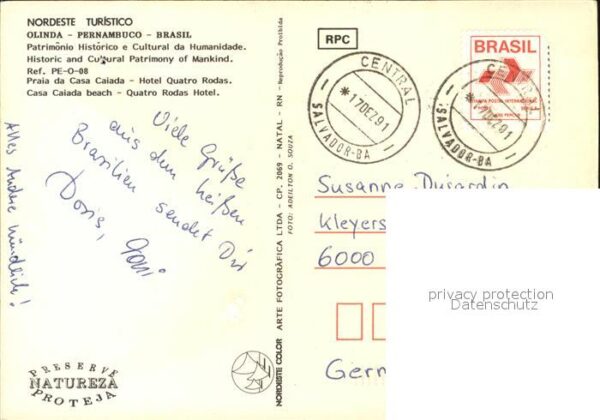 NORDESTE TURÍSTICO
OLINDA - PERNAMBUCO - BRASIL
Patrimônio Histórico e Cultural da Humanidade.
Historic and Cultural Patrimony of Mankind.
Ref. PE-O-08
Praia da Casa Caiada - Hotel Quatro Rodas.
Casa Caiada beach - Quatro Rodas Hotel.
Viele Grüße
aus dem heißen
Brasilien sendet Dir
Doris,
Alles Andere mündlich!
PRESERVE
NATUREZA
PROTEJA
NORDESTE COLOR ARTE FOTOGRÁFICA LTDA - CP. 2069 - NATAL - RN - Reprodução Proibida
FOTO: ADEILTON O. SOUZA
RPC
CENTRAL
*17DEZ91
SALVADOR-BA
BRASIL
CENTRAL
17DEZ91
SALVADOR-BA
Susanne Dujardin
Kleyers
6000
Germ
privacy protection
Datenschutz